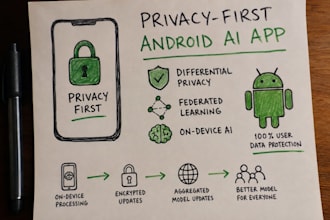 PRIVACY-FIRST
ANDROID AI APP
PRIVACY
FIRST
DIFFERENTIAL
PRIVACY
FEDERATED
LEARNING
ON-DEVICE AI
100% USER
DATA PROTECTION
ON-DEVICE
PROCESSING
ENCRYPTED
UPDATES
AGGREGATED
MODEL UPDATES
BETTER MODEL
FOR EVERYONE